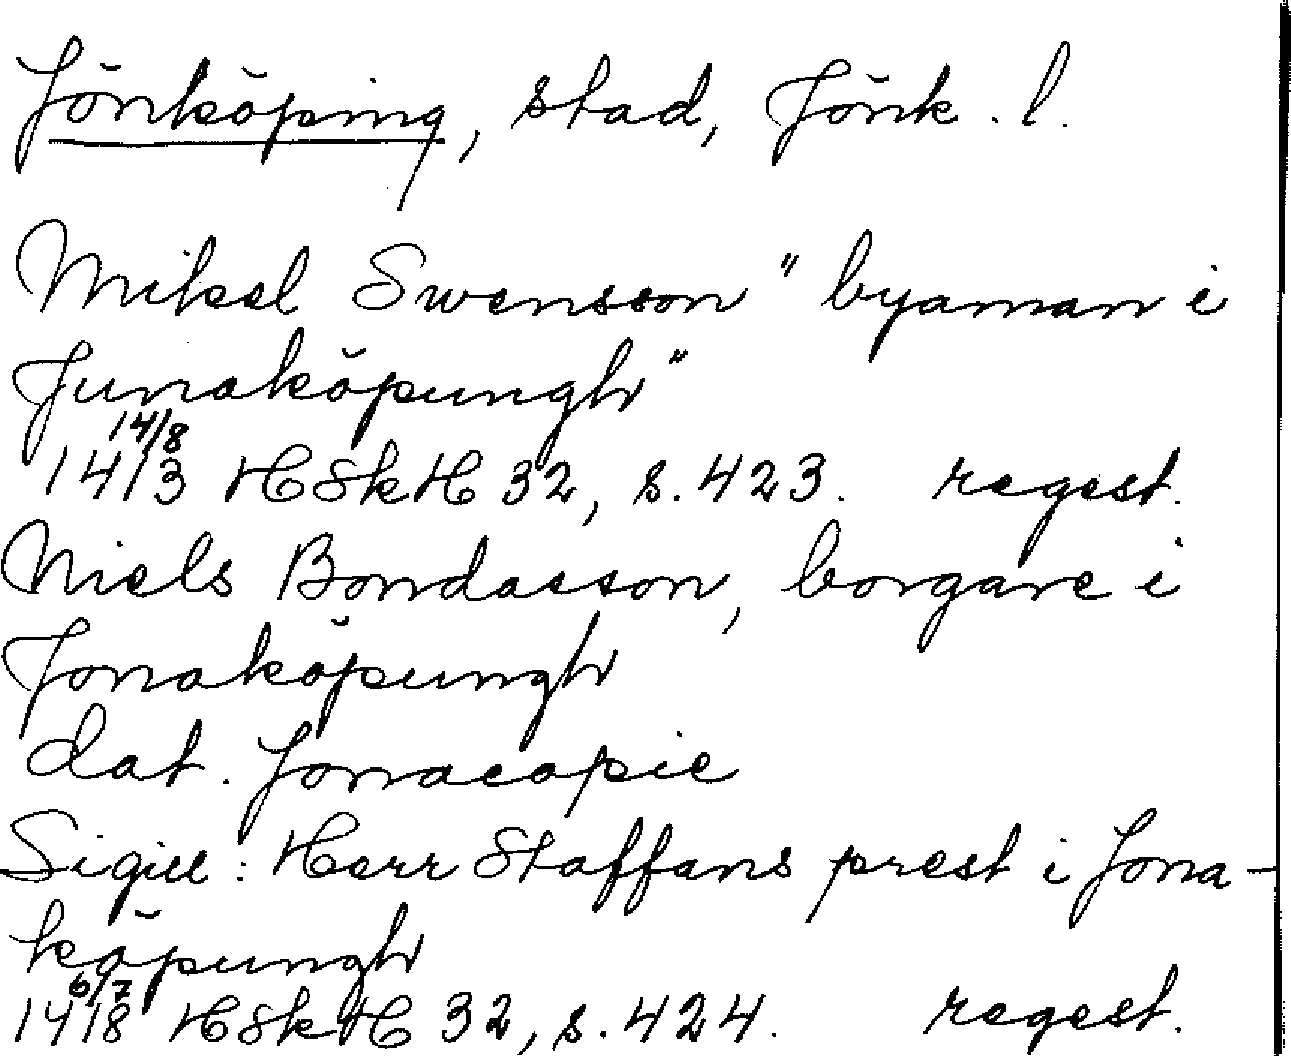 Jönköping, stad, Jönk. l.
Mikel Swensson "byaman i
Junaköpungh"
14/8
1413 HSkH 32, s. 423. regest.
Niels Bondasson, borgare i
Jonaköpungh
dat. Jonacopie
Sigill: Herr Staffans prest i Jona-
köpungh
6/7
1418 HSkH 32, s. 424. regest.